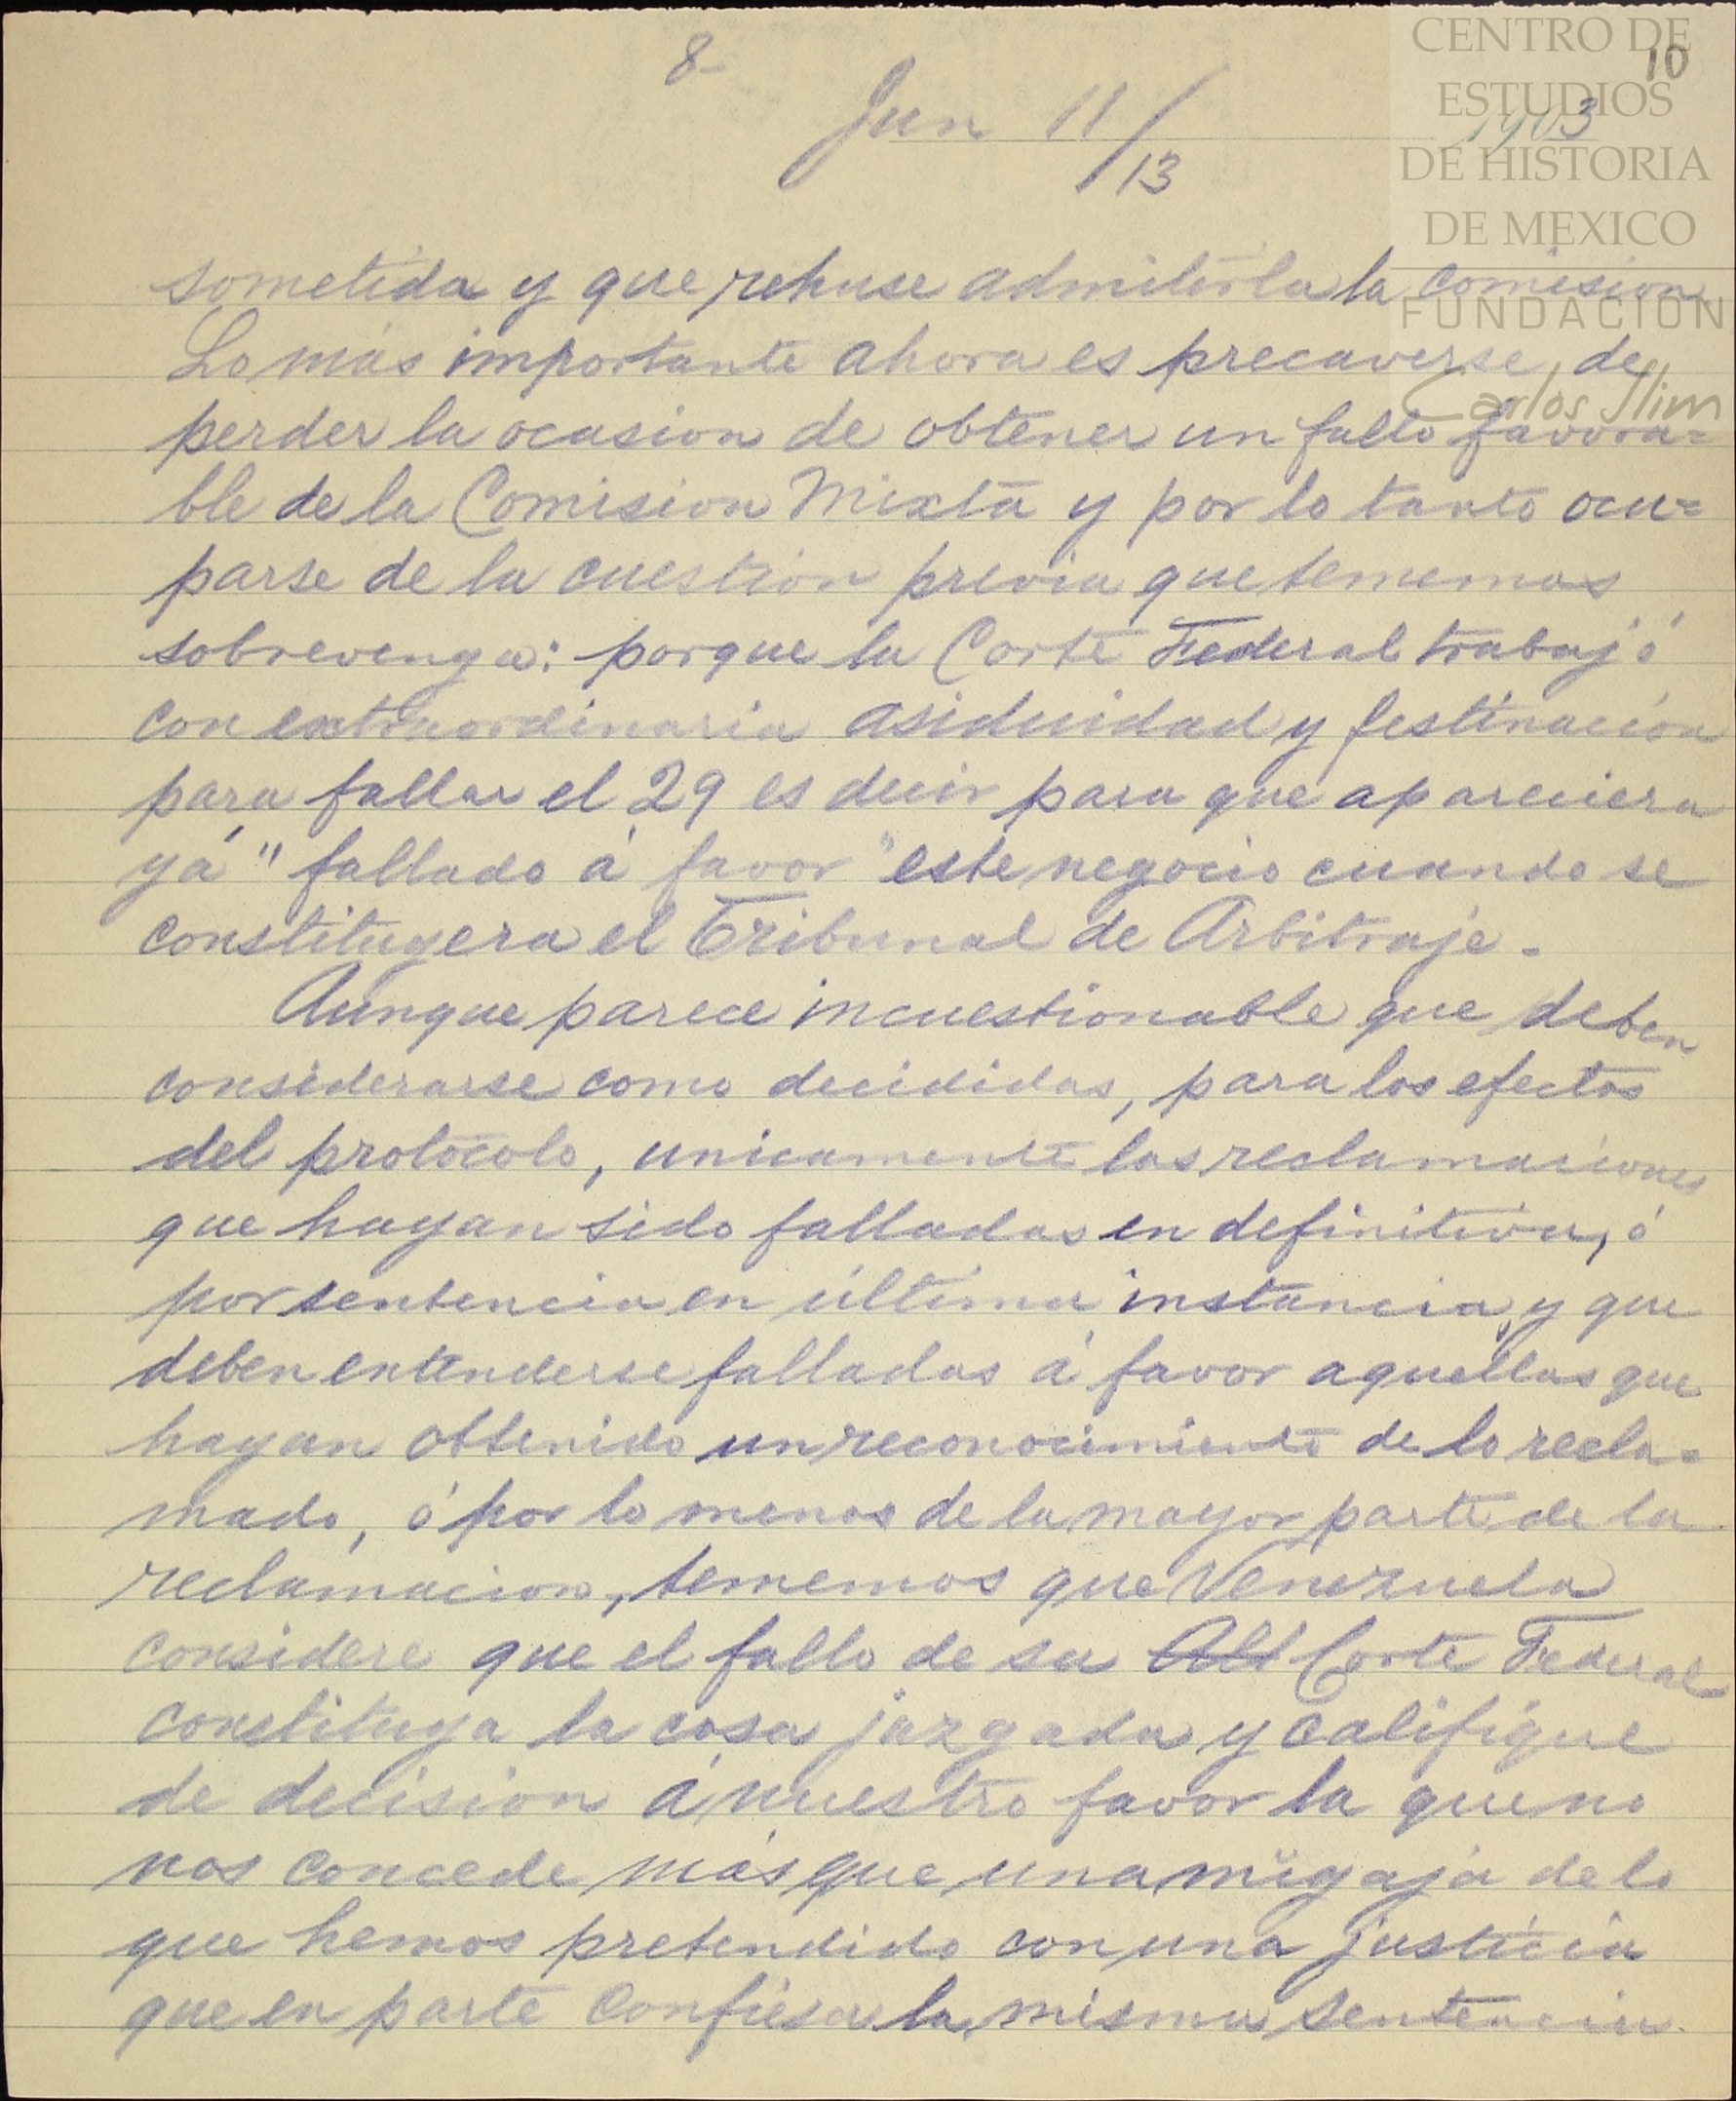 8-
10
Jun 11/13
1903
CENTRO DE
ESTUDIOS
DE HISTORIA
DE MEXICO
FUNDACION
Carlos Slim
sometida y que rehuse admitirla la comision.
Lo más importante ahora es precaverse de
perder la ocasion de obtener un fallo favora=
ble de la Comision Mixta y por lo tanto ocu=
parse de la cuestión previa que tememos
sobrevenga: porque la Corte Federal trabajó
con extraordinaria asiduidad y festinación
para fallar el 29 es decir para que apareciera
yá "fallado á favor" este negocio cuando se
constituyera el Tribunal de Arbitraje.
Aunque parece incuestionable que deben
considerarse como decididas, para los efectos
del protocolo, unicamente las reclamaciones
que hayan sido falladas en definitiva, ó
por sentencia en última instancia, y que
deben entenderse falladas á favor aquellas que
hayan obtenido un reconocimiento de lo recla=
mado, ó por lo menos de la mayor parte de la
reclamacion, tememos que Venezuela
considere que el fallo de su Alt Corte Federal
constituya la cosa juzgada y califique
de decision á nuestro favor la que no
nos concede más que una migaja de lo
que hemos pretendido con una justicia
que en parte confiesa la misma sentencia.